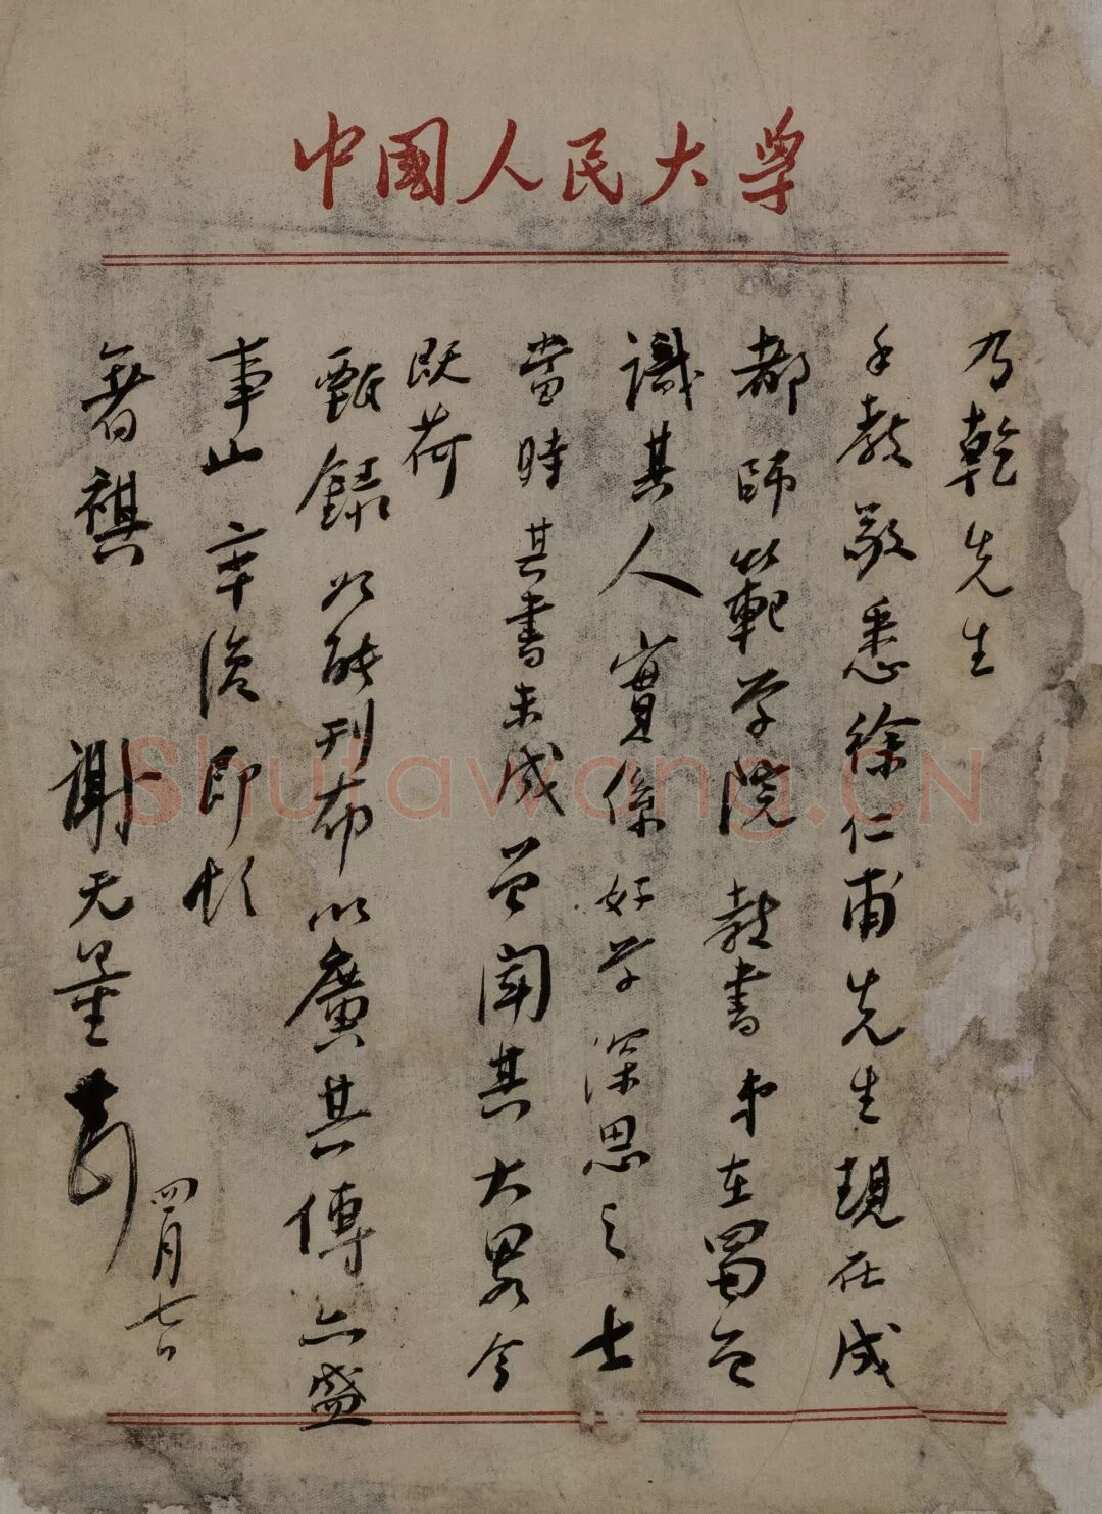 中國人民大學
乃乾先生
手教敬悉徐仁甫先生現在成
都師範学院教書弟在蜀曾
識其人實係好学深思之士
當時其書未成曾聞其大畧今
既荷
甄録如能刊布以廣其傳亦盛
事也率復即頌
著祺
謝无量
四月七日
Shufawang.CN